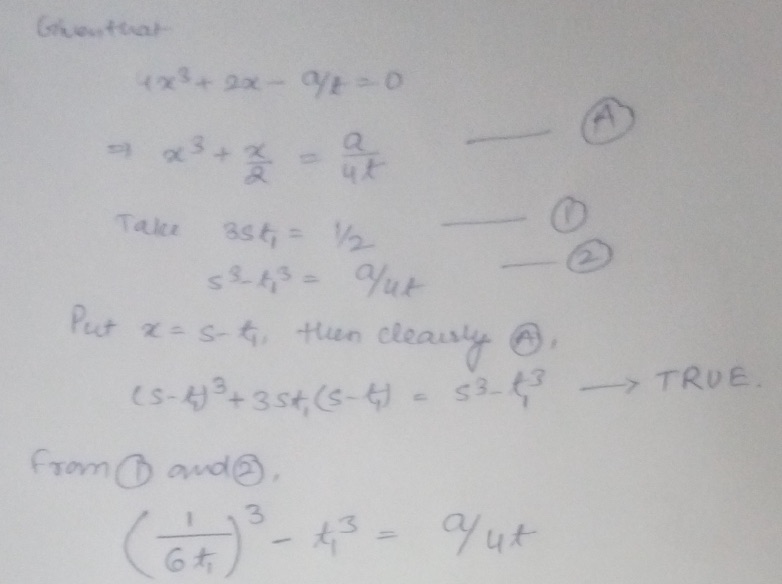 Given that
4x³ + 2x - a/t = 0
⇒ x³ + x/2 = a/4t —— Ⓐ
Take 3st₁ = 1/2 —— ①
s³ - t₁³ = a/4t —— ②
Put x = s - t₁, then clearly Ⓐ,
(s - t₁)³ + 3st₁(s - t₁) = s³ - t₁³ → TRUE.
From ① and ②,
(1/6t₁)³ - t₁³ = a/4t